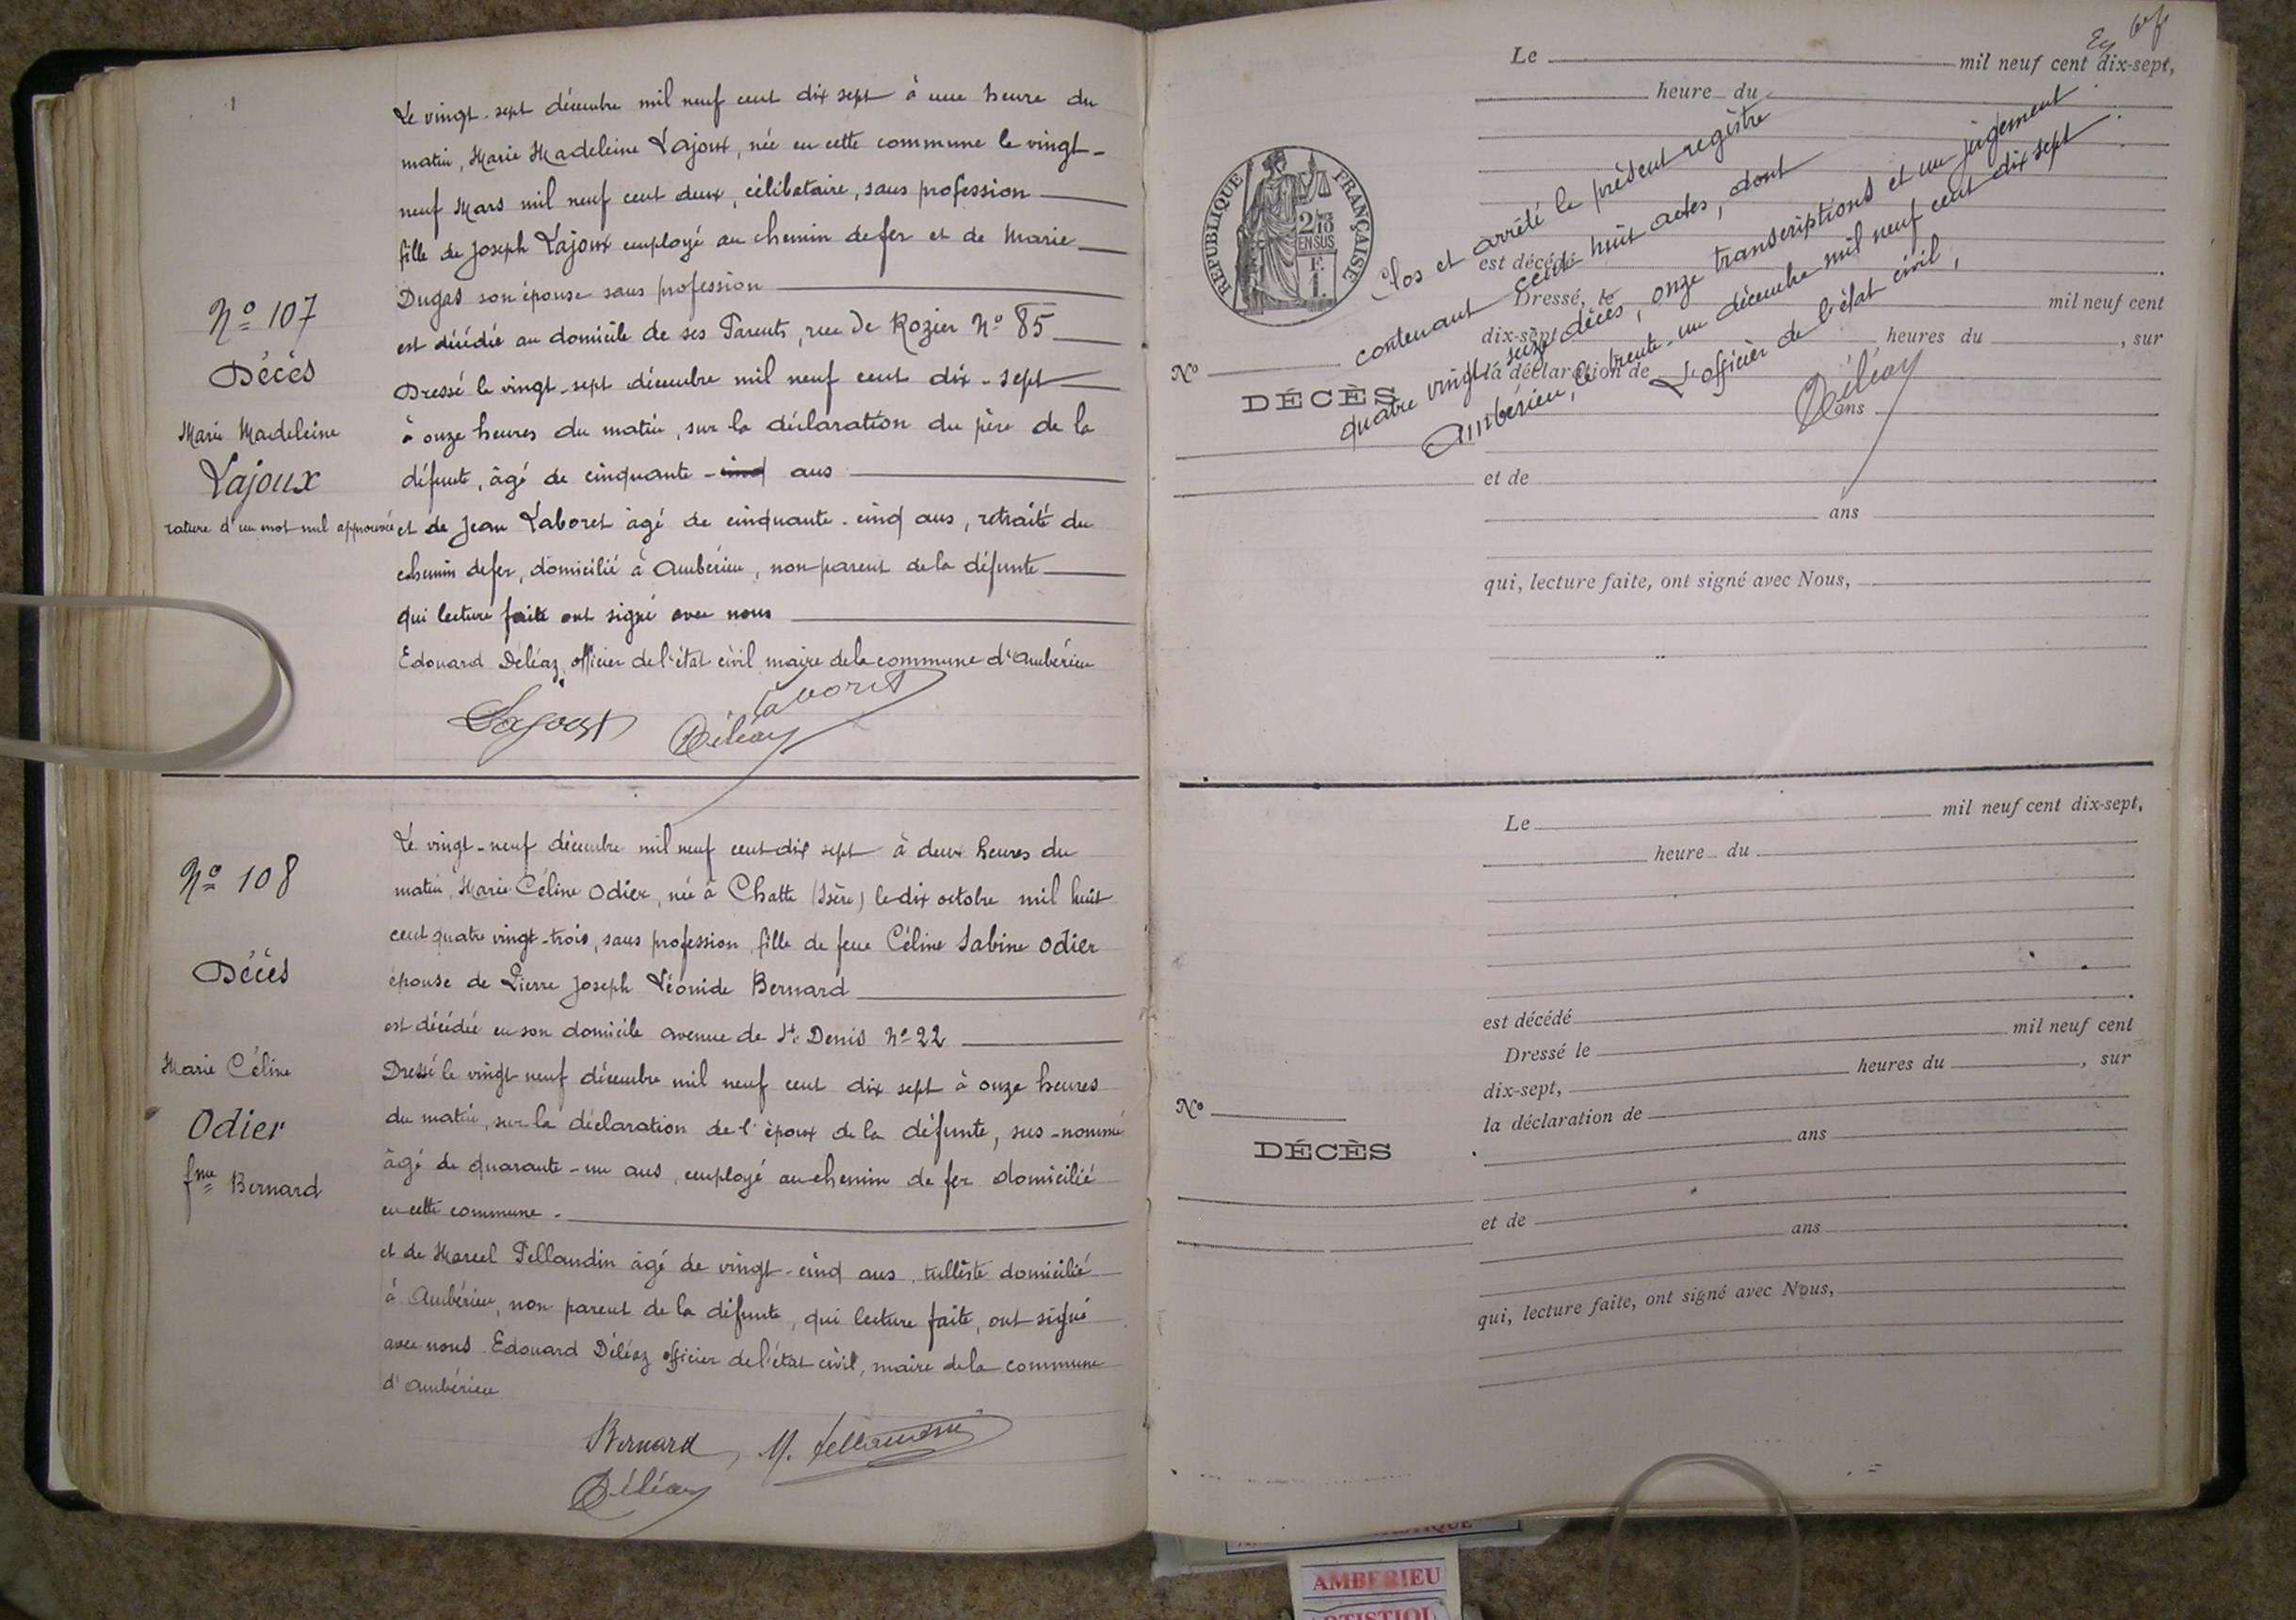 Le vingt-sept décembre mil neuf cent dix sept à une heure du
matin, Marie Madeleine Lajoux, née en cette commune le vingt-
neuf Mars mil neuf cent deux, célibataire, sans profession
fille de Joseph Lajoux employé au chemin de fer et de Marie
Dugas son épouse sans profession
est décédée au domicile de ses Parents, rue De Rozier No 85
Dressé le vingt-sept décembre mil neuf cent dix-sept
à onze heures du matin, sur la déclaration du père de la
défunte, âgé de cinquante-cinq ans
et de Jean Laboret âgé de cinquante-cinq ans, retraité du
chemin de fer, domicilié à Ambérieu, non parent de la défunte
qui lecture faite ont signé avec nous
Edouard Déléaz, officier de l'état civil maire de la commune d'Ambérieu
Lajoux Laboret
Déléaz
No 107
Décès
Marie Madeleine
Lajoux
rature d'un mot nul approuvée
No 108
Décès
Marie Céline
Odier
fme Bernard
Le vingt-neuf décembre mil neuf cent dix sept à deux heures du
matin, Marie Céline Odier, née à Chatte (Isère) le dix octobre mil huit
cent quatre vingt-trois, sans profession, fille de feue Céline Sabine Odier
épouse de Pierre Joseph Léonide Bernard
est décédée en son domicile avenue de St Denis No 22
Dressé le vingt neuf décembre mil neuf cent dix sept à onze heures
du matin, sur la déclaration de l'époux de la défunte, sus-nommé
âgé de quarante-un ans, employé au chemin de fer domicilié
en cette commune.
et de Marcel Pellaudin âgé de vingt-cinq ans, tulliste domicilié
à Ambérieu, non parent de la défunte, qui lecture faite, ont signé
avec nous Edouard Déléaz officier de l'état civil, maire de la commune
d'Ambérieu
Bernard, M. Pellaudin
Déléaz
Le mil neuf cent dix-sept,
heure du
RÉPUBLIQUE FRANÇAISE
2/10
EN SUS
F.
1.
est décédé
Dressé, le mil neuf cent
dix-sept, heures du , sur
la déclaration de
ans
No
DÉCÈS
et de
ans
qui, lecture faite, ont signé avec Nous,
Clos et arrêté le présent registre
contenant cent huit actes, dont
quatre vingt seize décès, onze transcriptions et un jugement
Ambérieu, le trente-un décembre mil neuf cent dix sept
L'officier de l'état civil,
Déléaz
Le mil neuf cent dix-sept,
heure du
est décédé
Dressé le mil neuf cent
dix-sept, heures du , sur
la déclaration de
ans
No
DÉCÈS
et de
ans
qui, lecture faite, ont signé avec Nous,
AMBERIEU